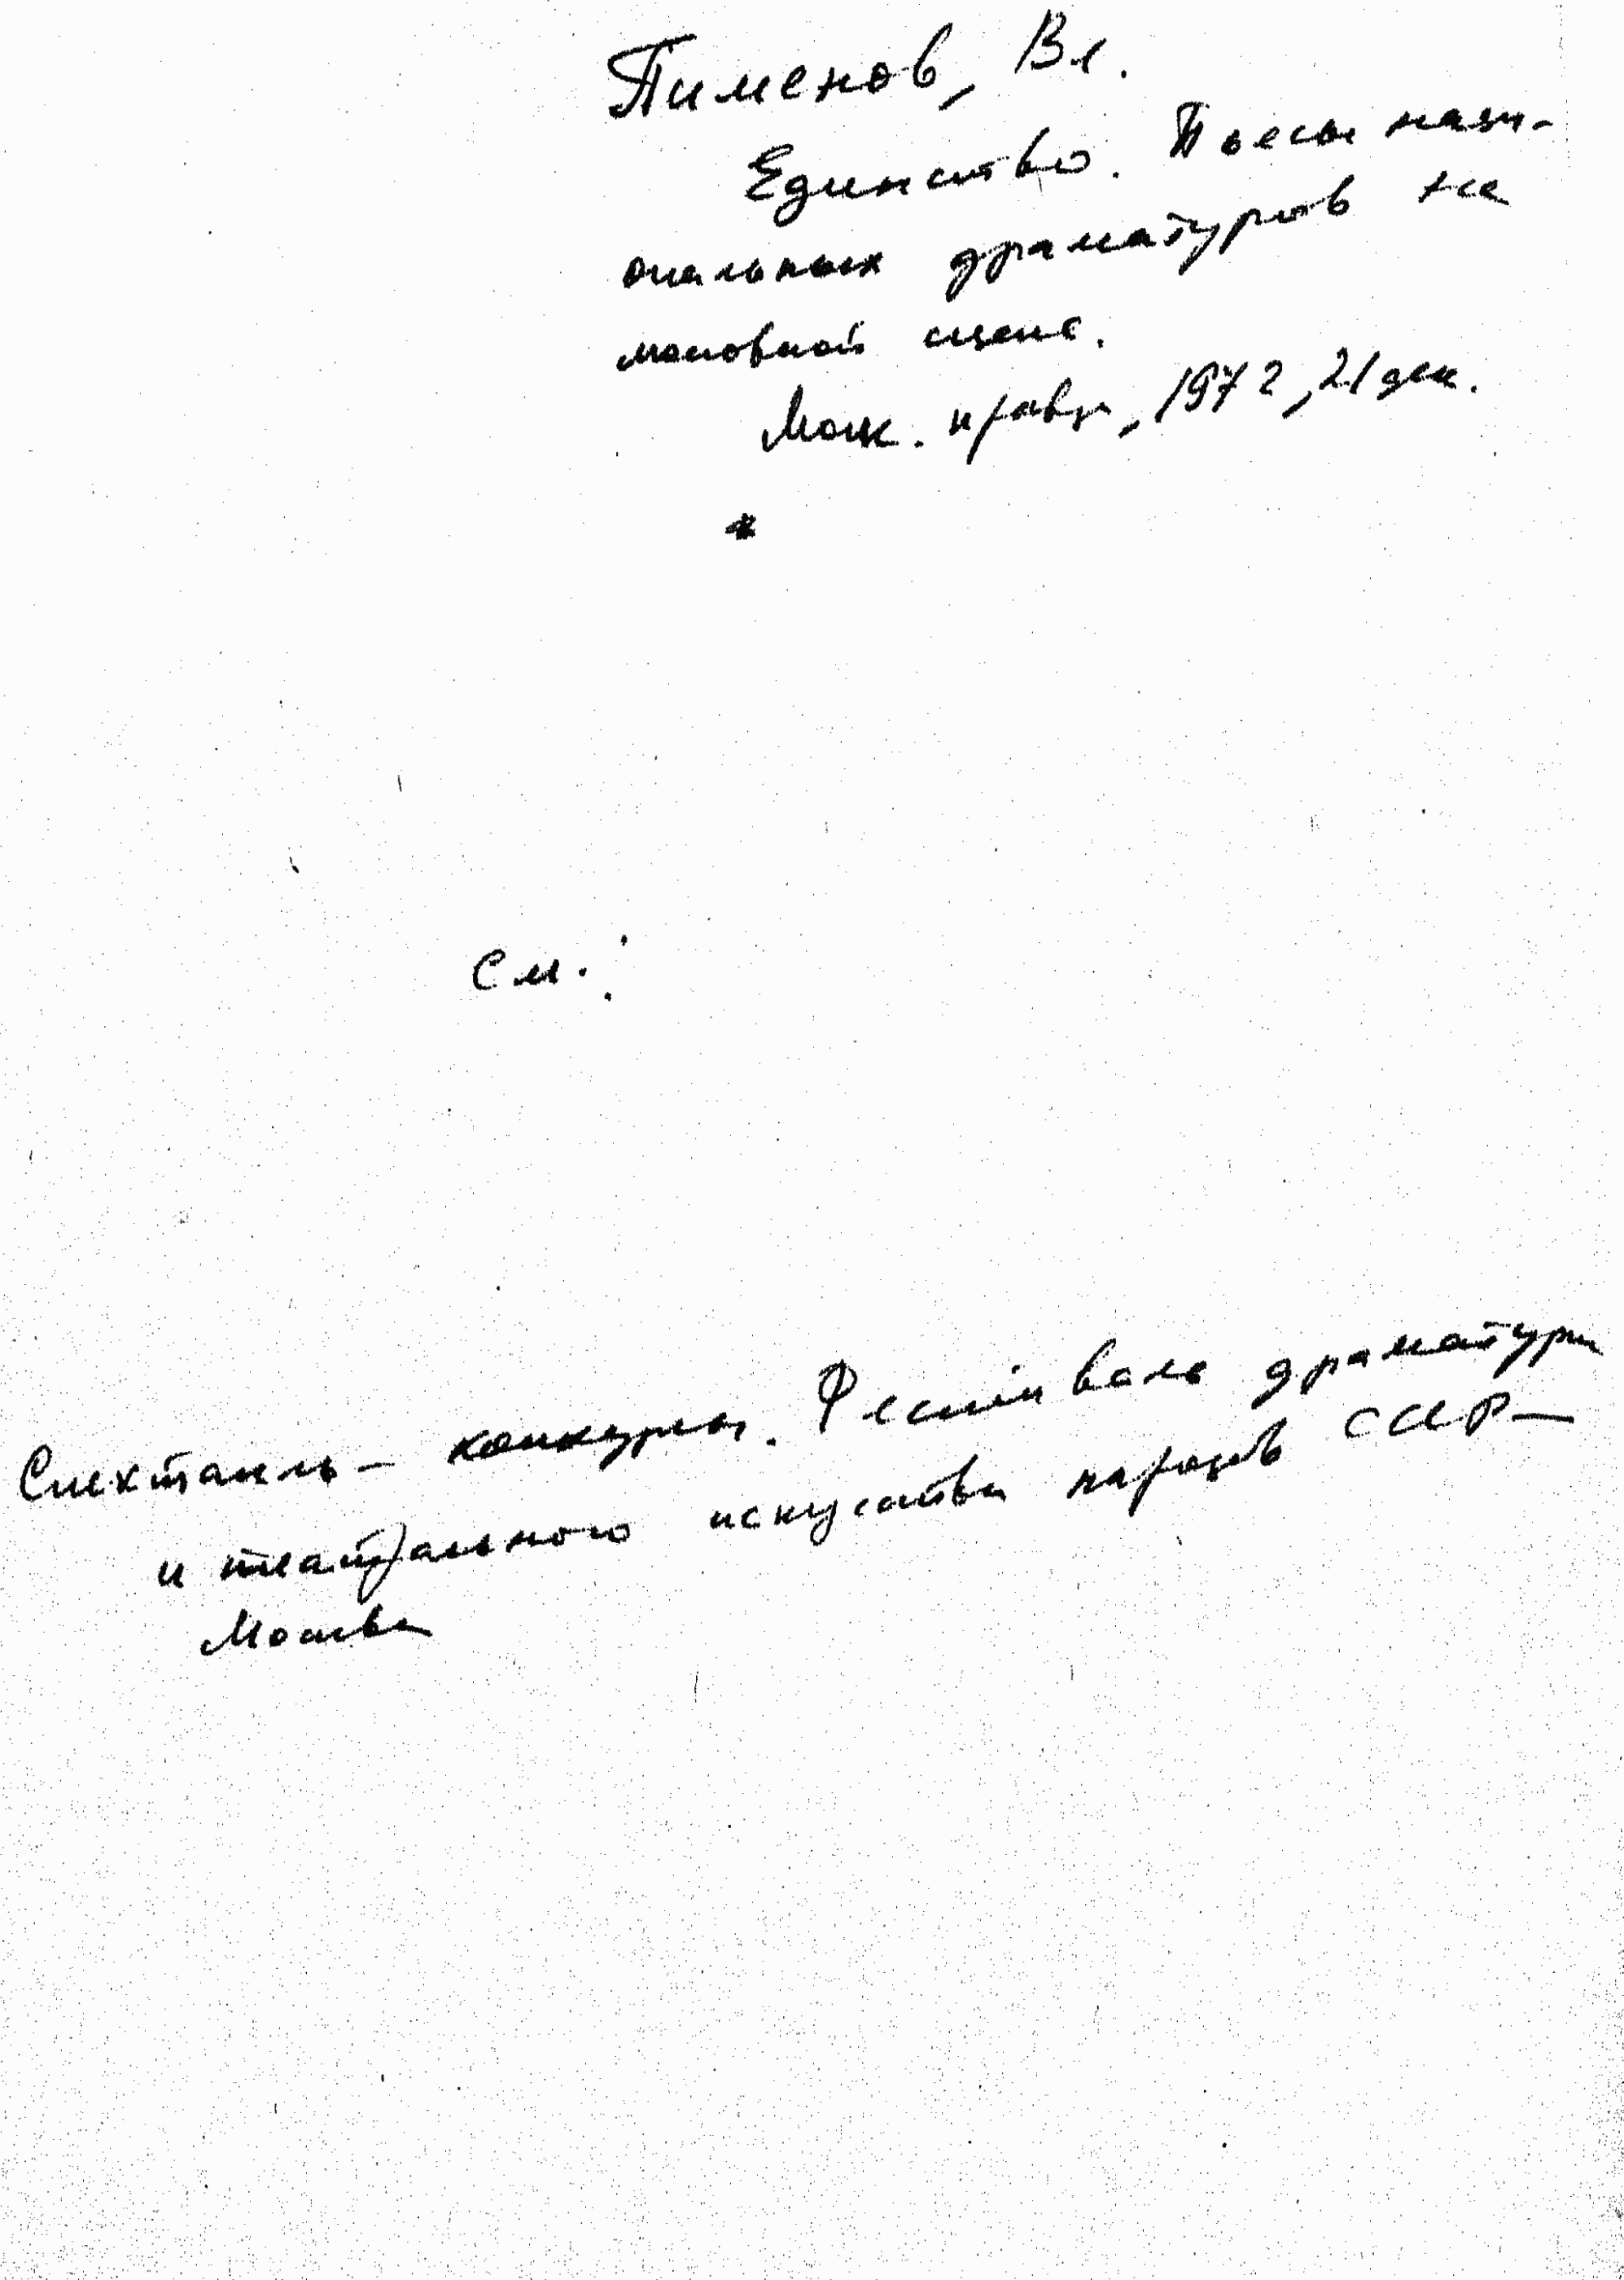 Пименов, Вл.
Единство. Пьесы наци-
ональных драматургов на
московской сцене.
Моск. правда, 1972, 21 дек.
*
См.:
Спектакль - конкурсы. Фестиваль драматургии
и театрального искусства народов СССР —
Москва